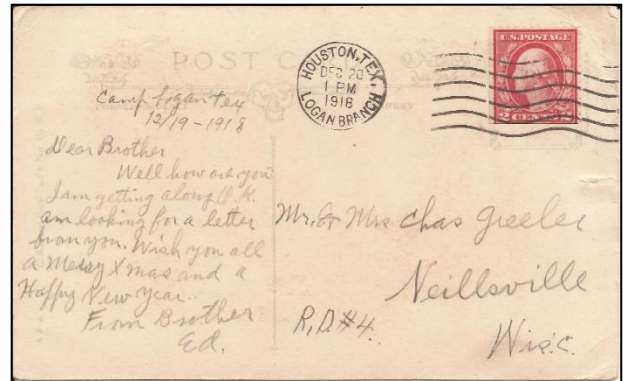 POST C
HOUSTON, TEX.
DEC 20
1 PM
1918
LOGAN BRANCH
U.S. POSTAGE
2 CENTS 2
Camp Logan Tex
12/19-1918
Dear Brother
Well how are you
I am getting along O.K.
am looking for a letter
from you. Wish you all
a Merry Xmas and a
Happy New Year..
From Brother
Ed.
Mr. & Mrs Chas Greeler
Neillsville
R.D. #4.
Wisc.